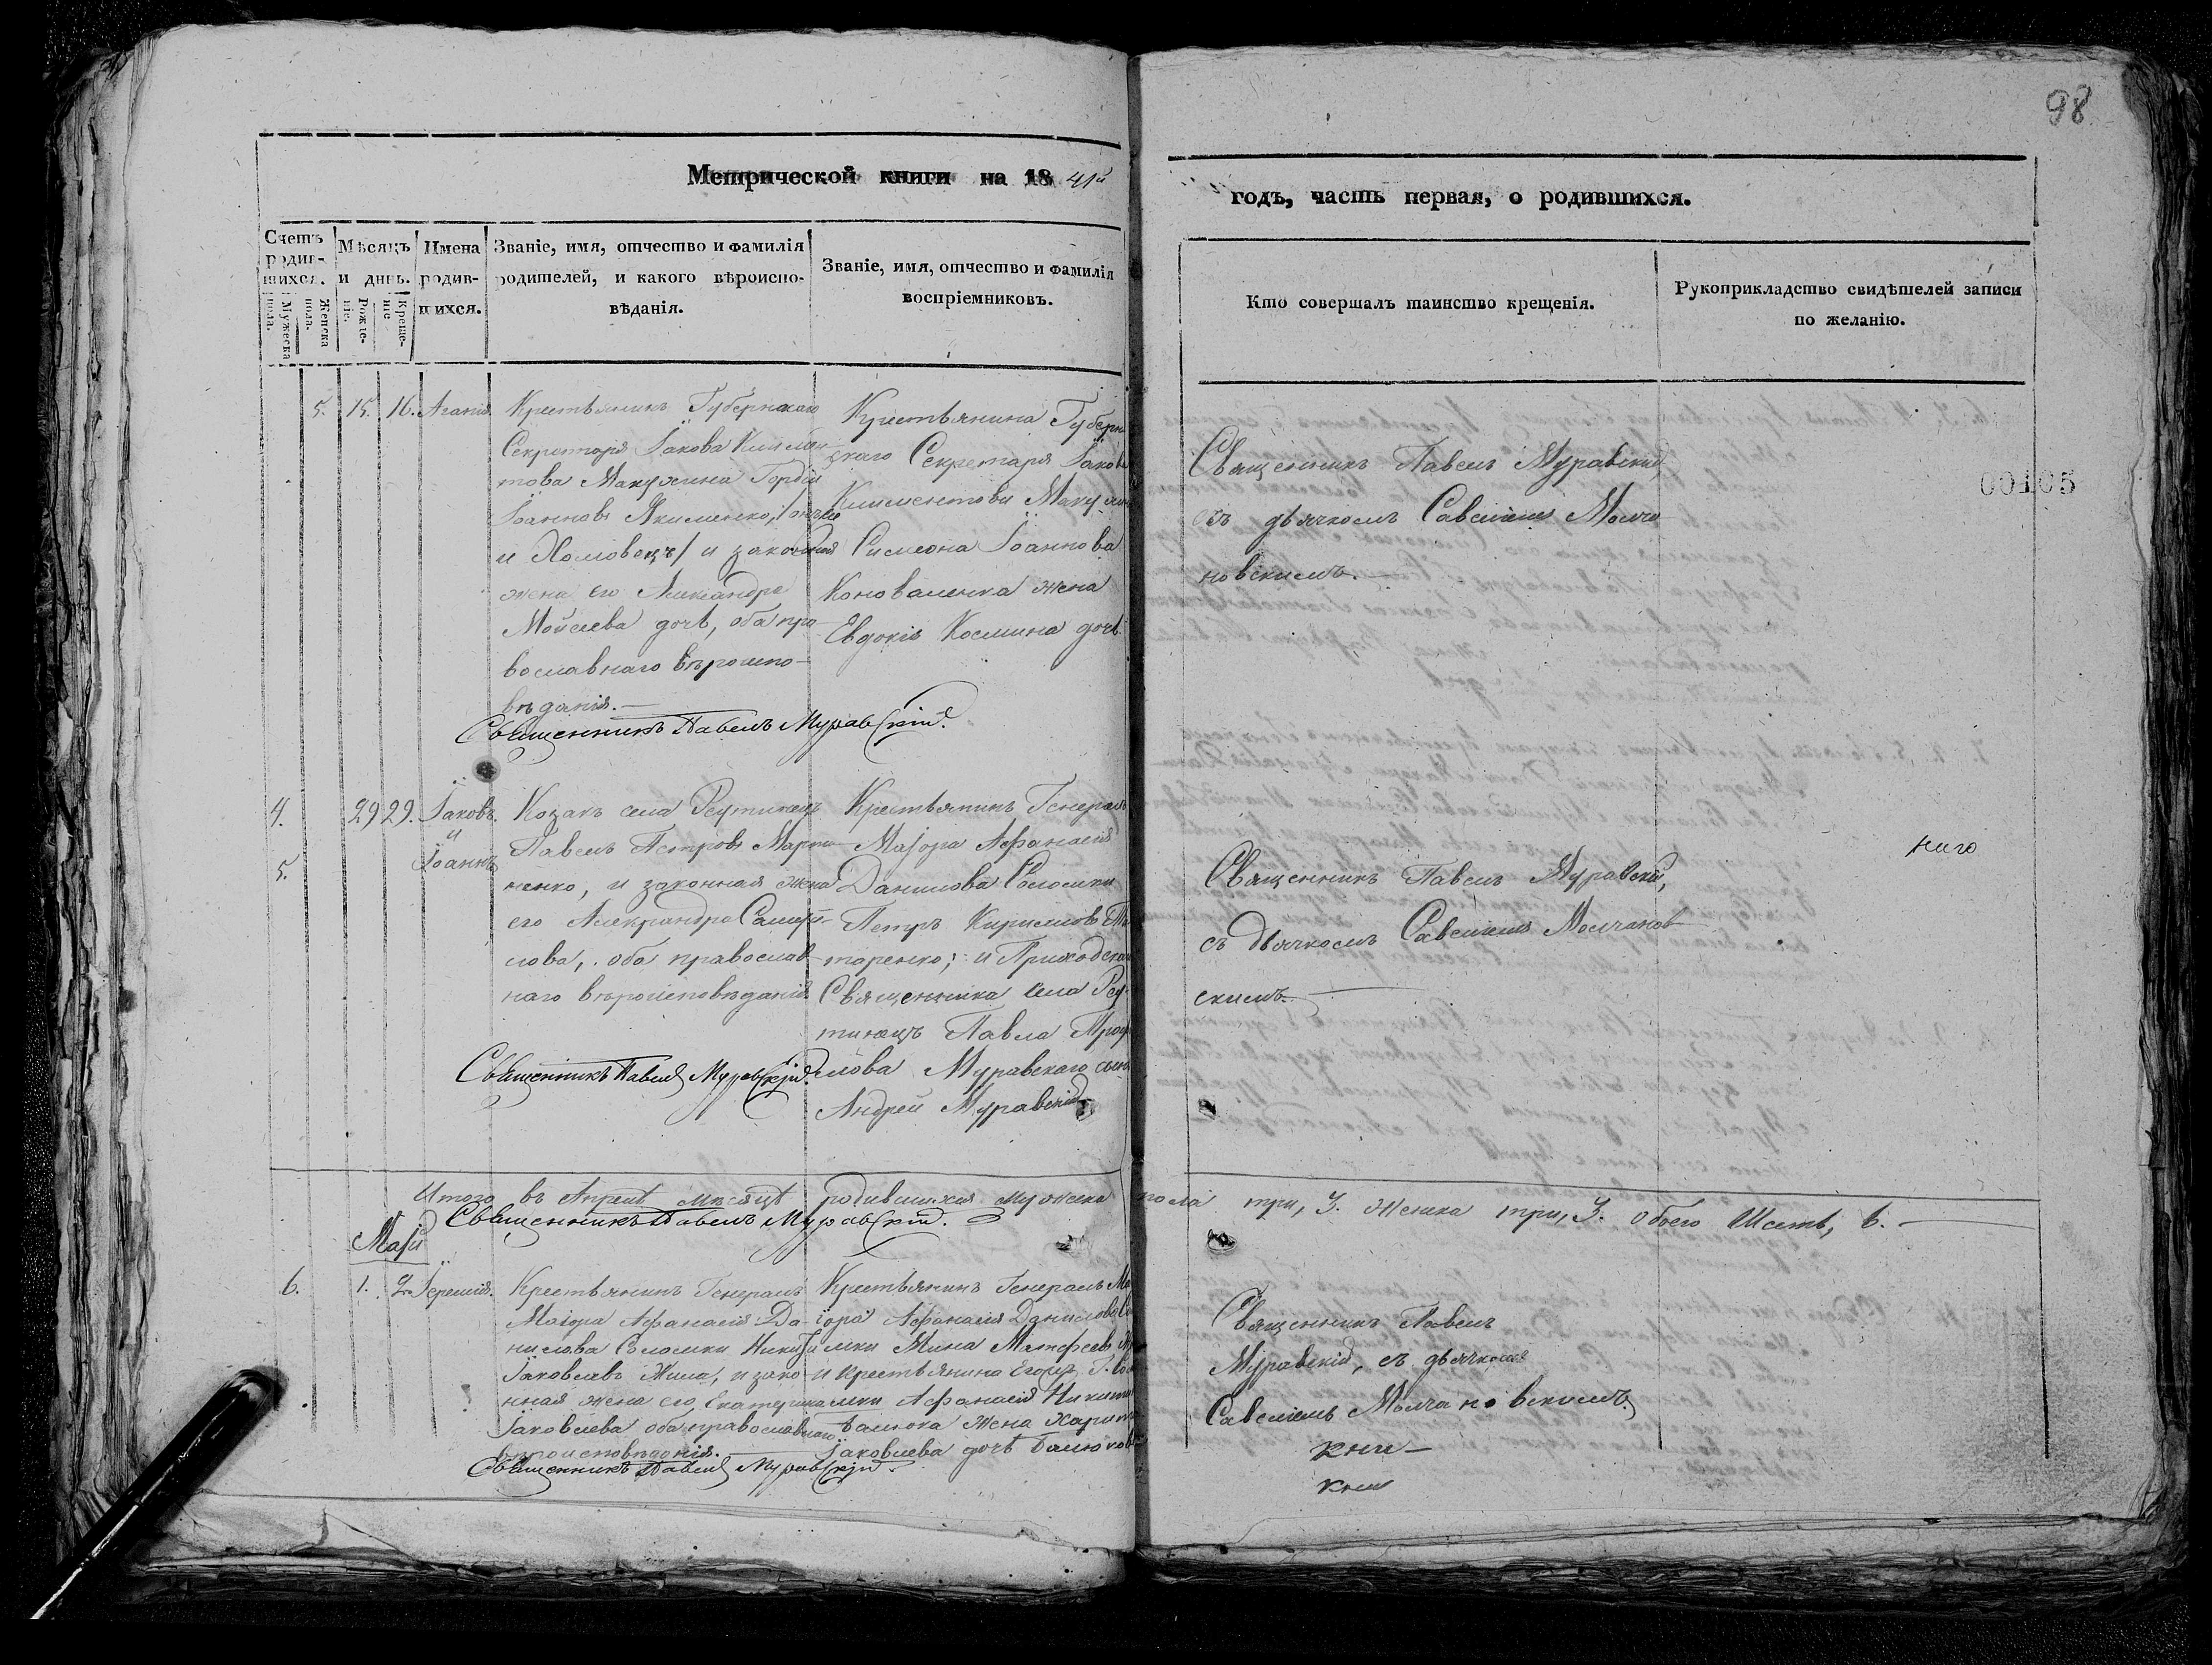 98
Метрической книги на 18 41й
годъ, часть первая, о родившихся.
Счетъ родив-шихся.
Мужеска пола.
Женска пола.
Мѣсяцъ и день.
Рожде-ніе.
Креще-ніе.
Имена родив-шихся.
Званіе, имя, отчество и фамилія
родителей, и какого вѣроиспо-
вѣданія.
Званіе, имя, отчество и фамилія
воспріемниковъ.
Кто совершалъ таинство крещенія.
Рукоприкладство свидѣтелей записи
по желанію.
00105
5. 15. 16.
Крестьянинъ Губернскаго
Секретаря Іакова Климен
това Макухина Гордій
Іоанновъ Якименко,
и законная
жена его Александра
Мойсеева дочь, оба пра-
вославнаго вѣроиспо-
вѣданія.
Священникъ Павелъ Муравскій.
Крестьянина Губерн
скаго Секретаря Іакова
Климентова
Симеона Іоаннова
Коноваленка жена
Евдокія Космина дочь
Священникъ Павелъ Муравскій,
съ дьячкомъ Савеліемъ Молча
новскимъ.
4. 29 29. Іаковъ.
и
5. Іоаннъ
Козакъ села Реутинецъ
Павелъ Петровъ Марти
ненко, и законная жена
его Александра Самуй-
лова, оба православ-
наго вѣроисповѣданія
Священникъ Павелъ Муравскій.
Крестьянинъ Генералъ
Маіора Афанасія
Данилова Соломки
Петръ Кириловъ
таренко; и Приходскаго
Священника села Реу-
тинецъ Павла
Муравскаго сынъ
Андрей Муравскій
Священникъ Павелъ Муравскій,
съ дьячкомъ Савеліемъ Молчанов
скимъ.
наго
Итого въ Апрелѣ мѣсяцѣ родившихся мужеска пола три, 3. женска три, 3. обоего шесть, 6.
Священникъ Павелъ Муравскій.
Маій
6. 1. 2. Іеремія.
Крестьянинъ Генералъ
Маіора Афанасія Да-
нилова Соломки
Іаковлевъ Жила, и зако-
нная жена его, Екатерина
Іаковлева оба православнаго
вѣроисповѣданія.
Священникъ Павелъ Муравскій.
Крестьянинъ Генералъ Ма
іора Афанасія Данилова Со
ломки Мина Матфеевъ
и крестьянина Егожъ Г. Соло
мки Афанасія Никити
жена
Іаковлева дочь
Священникъ Павелъ
Муравскій, съ дьячкомъ
Савеліемъ Молчановскимъ.
кни-
кни